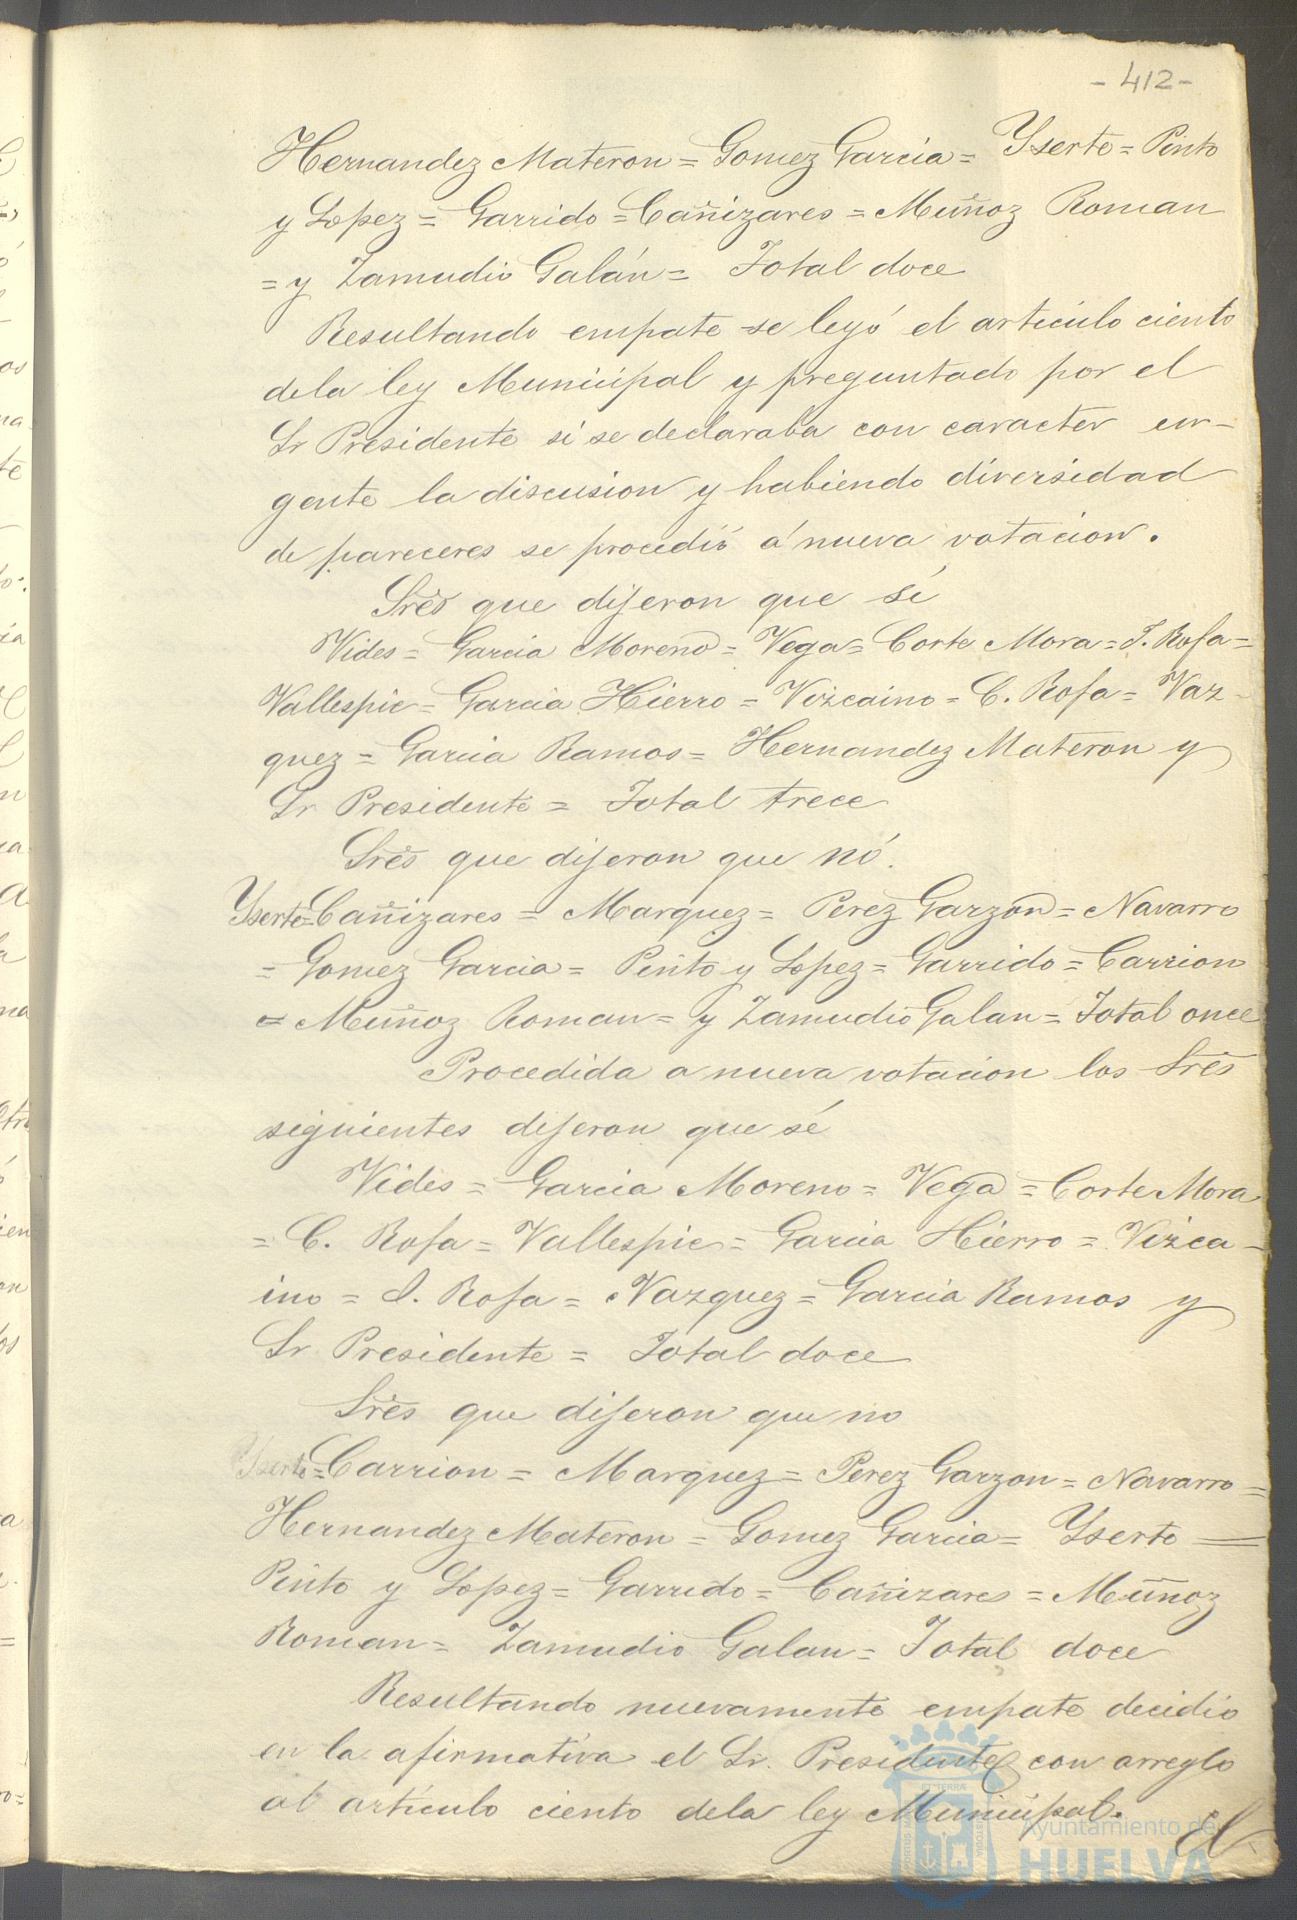 - 412 -
Hernandez Materon = Gomez Garcia = Yserte = Pinto
y Lopez = Garrido = Cañizares = Muñoz Roman
= y Zamudio Galán = Total doce
Resultando empate se leyó el artículo ciento
dela ley Municipal y preguntado por el
Sr Presidente si se declaraba con caracter ur-
gente la discusion y habiendo diversidad
de pareceres se procedió á nueva votacion.
Sres que dijeron que sí
Vides = Garcia Moreno = Vega = Corte Mora = J. Rofa =
Vallespin = Garcia Hierro = Vizcaino = C. Rofa = Vaz-
quez = Garcia Ramos = Hernandez Materon y
Sr Presidente = Total trece
Sres que dijeron que nó.
Yserte = Cañizares = Marquez = Perez Garzon = Navarro
= Gomez Garcia = Pinto y Lopez = Garrido = Carrion
= Muñoz Roman = y Zamudio Galan = Total once
Procedida a nueva votacion los Sres
siguientes dijeron que sí
Vides = Garcia Moreno = Vega = Corte Mora
= C. Rofa = Vallespin = Garcia Hierro = Vizca-
ino = J. Rofa = Vazquez = Garcia Ramos y
Sr Presidente = Total doce
Sres que dijeron que no
Yserte = Carrion = Marquez = Perez Garzon = Navarro =
Hernandez Materon = Gomez Garcia = Yserte =
Pinto y Lopez = Garrido = Cañizares = Muñoz
Roman = Zamudio Galan = Total doce
Resultando nuevamente empate decidio
en la afirmativa el Sr. Presidente con arreglo
al artículo ciento dela ley Municipal. El
Ayuntamiento de
HUELVA